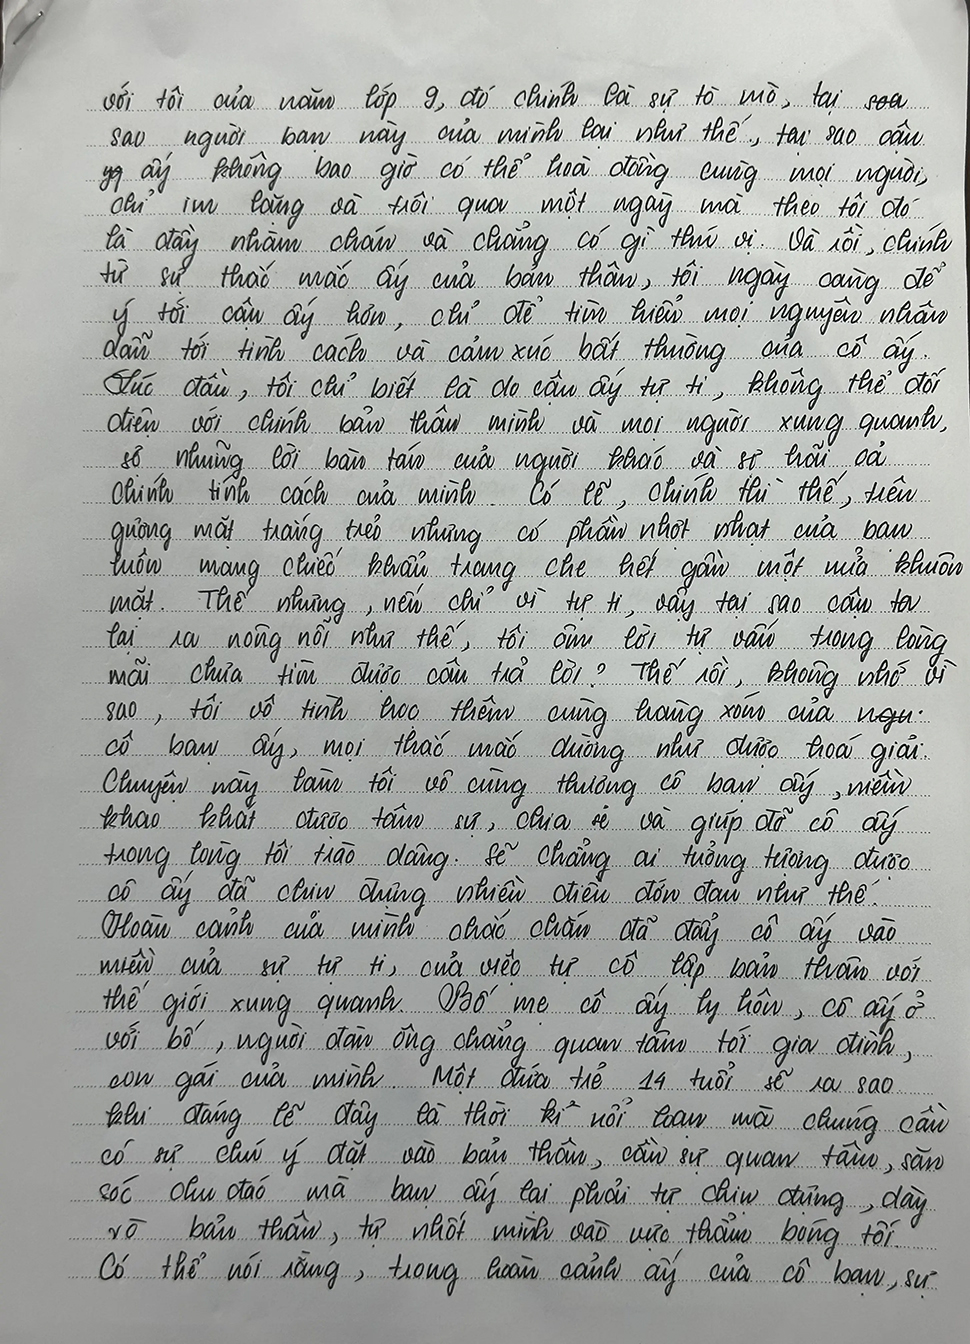 với tôi của năm lớp 9, đó chính là sự tò mò, tại
sao người bạn này của mình lại như thế, tại sao cậu
ấy không bao giờ có thể hoà đồng cùng mọi người,
chỉ im lặng và trôi qua một ngày mà theo tôi đó
là đầy nhàm chán và chẳng có gì thú vị. Và rồi, chính
từ sự thắc mắc ấy của bản thân, tôi ngày càng để
ý tới cậu ấy hơn, chỉ để tìm hiểu mọi nguyên nhân
dẫn tới tính cách và cảm xúc bất thường của cô ấy.
Lúc đầu, tôi chỉ biết là do cậu ấy tự ti, không thể đối
diện với chính bản thân mình và mọi người xung quanh,
sợ những lời bàn tán của người khác và sợ hãi cả
chính tính cách của mình. Có lẽ, chính thì thế, trên
gương mặt trắng trẻo nhưng có phần nhợt nhạt của bạn
luôn mang chiếc khẩu trang che hết gần một nửa khuôn
mặt. Thế nhưng, nếu chỉ vì tự ti, vậy tại sao cậu ta
lại ra nông nỗi như thế, tôi ôm lời tự vấn trong lòng
mãi chưa tìm được câu trả lời? Thế rồi, không nhớ vì
sao, tôi vô tình học thêm cùng hàng xóm của
cô bạn ấy, mọi thắc mắc dường như được hoá giải.
Chuyện này làm tôi vô cùng thương cô bạn ấy, niềm
khao khát được tâm sự, chia sẻ và giúp đỡ cô ấy
trong lòng tôi trào dâng. Sẽ chẳng ai tưởng tượng được
cô ấy đã chịu đựng nhiều điều đớn đau như thế.
Hoàn cảnh của mình chắc chắn đã đẩy cô ấy vào
miền của sự tự ti, của việc tự cô lập bản thân với
thế giới xung quanh. Bố mẹ cô ấy ly hôn, cô ấy ở
với bố, người đàn ông chẳng quan tâm tới gia đình,
con gái của mình. Một đứa trẻ 14 tuổi sẽ ra sao
khi đáng lẽ đây là thời kì nổi loạn mà chúng cần
có sự chú ý đặt vào bản thân, cần sự quan tâm, săn
sóc chu đáo mà bạn ấy lại phải tự chịu đựng, dày
vò bản thân, tự nhốt mình vào vực thẳm bóng tối.
Có thể nói rằng, trong hoàn cảnh ấy của cô bạn, sự